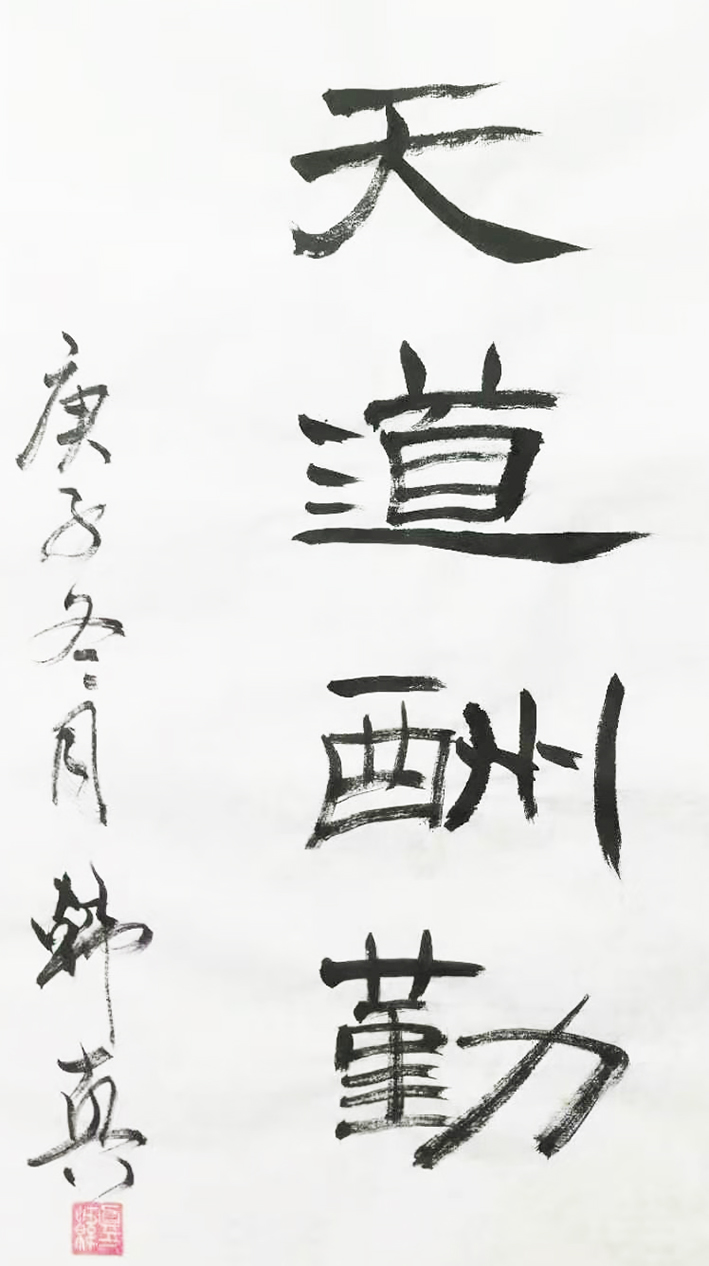 天道酬勤
庚子冬月韩真